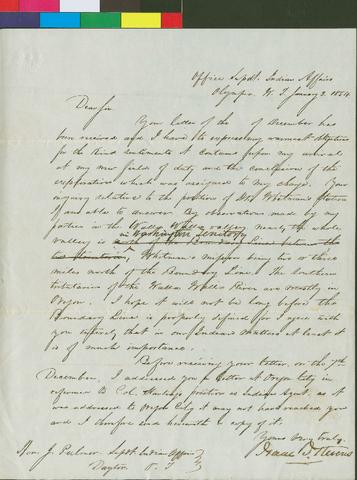 Office Supdt. Indian Affairs
Olympia W. T. January 2. 1854.
Dear Sir
Your letter of the of December has
been received and I have to express my warmest
for the kind sentiments it contains upon my arrival
at my new field of duty and the completion of the
exploration which was assigned to my charge. Your
inquiry relative to the position of Whitman's Station
I am able to answer. By observations made by my
parties in the Walla Walla valley nearly the whole
in Washington Territory
valley is north of the Boundary Line between the
two Territories, Whitman's mission being two or three
miles north of the Boundary Line. The southern
tributaries of the Walla Walla River are mostly in
Oregon. I hope it will not be long before the
Boundary Line is properly defined for I agree with
you entirely that in our Indian matters at least it
is of much importance.
Before receiving your letter, on the 7th
December, I addressed you a letter at Oregon City in
reference to Col. position as Indian Agent. as it
was addressed to Oregon City it may not have reached you
and I therefore send herewith a copy of it.
Yours very truly,
Isaac I. Stevens
Hon. J. Palmer Supdt. Indian Affairs
Dayton O. T.